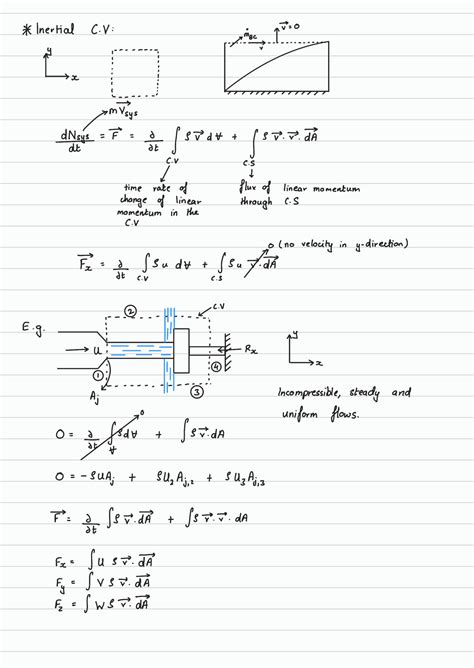 * Inertial C.V:
y
x
ṁBC
v
v⃗=0
mV⃗sys
dNsys/dt = F⃗ = ∂/∂t ∫C.V ρ v⃗ d∀ + ∫C.S ρ v⃗. v⃗. dA⃗
time rate of change of linear momentum in the C.V
flux of linear momentum through C.S
F⃗x = ∂/∂t ∫C.V ρ u d∀ + ∫C.S ρ u v⃗. dA⃗ 0 (no velocity in y-direction)
E.g.
C.V
②
U
①
Aj
③
④
Rx
y
x
Incompressible, steady and
uniform flows.
0 = ∂/∂t ∫∀ ρ d∀ 0 + ∫ ρ v⃗. dA
0 = -ρUAj + ρU2Aj,2 + ρU3Aj,3
F⃗ = ∂/∂t ∫ ρ v⃗. dA⃗ + ∫ ρ v⃗. v⃗. dA
Fx = ∫ U ρ v⃗. dA⃗
Fy = ∫ V ρ v⃗. dA⃗
Fz = ∫ W ρ v⃗. dA⃗